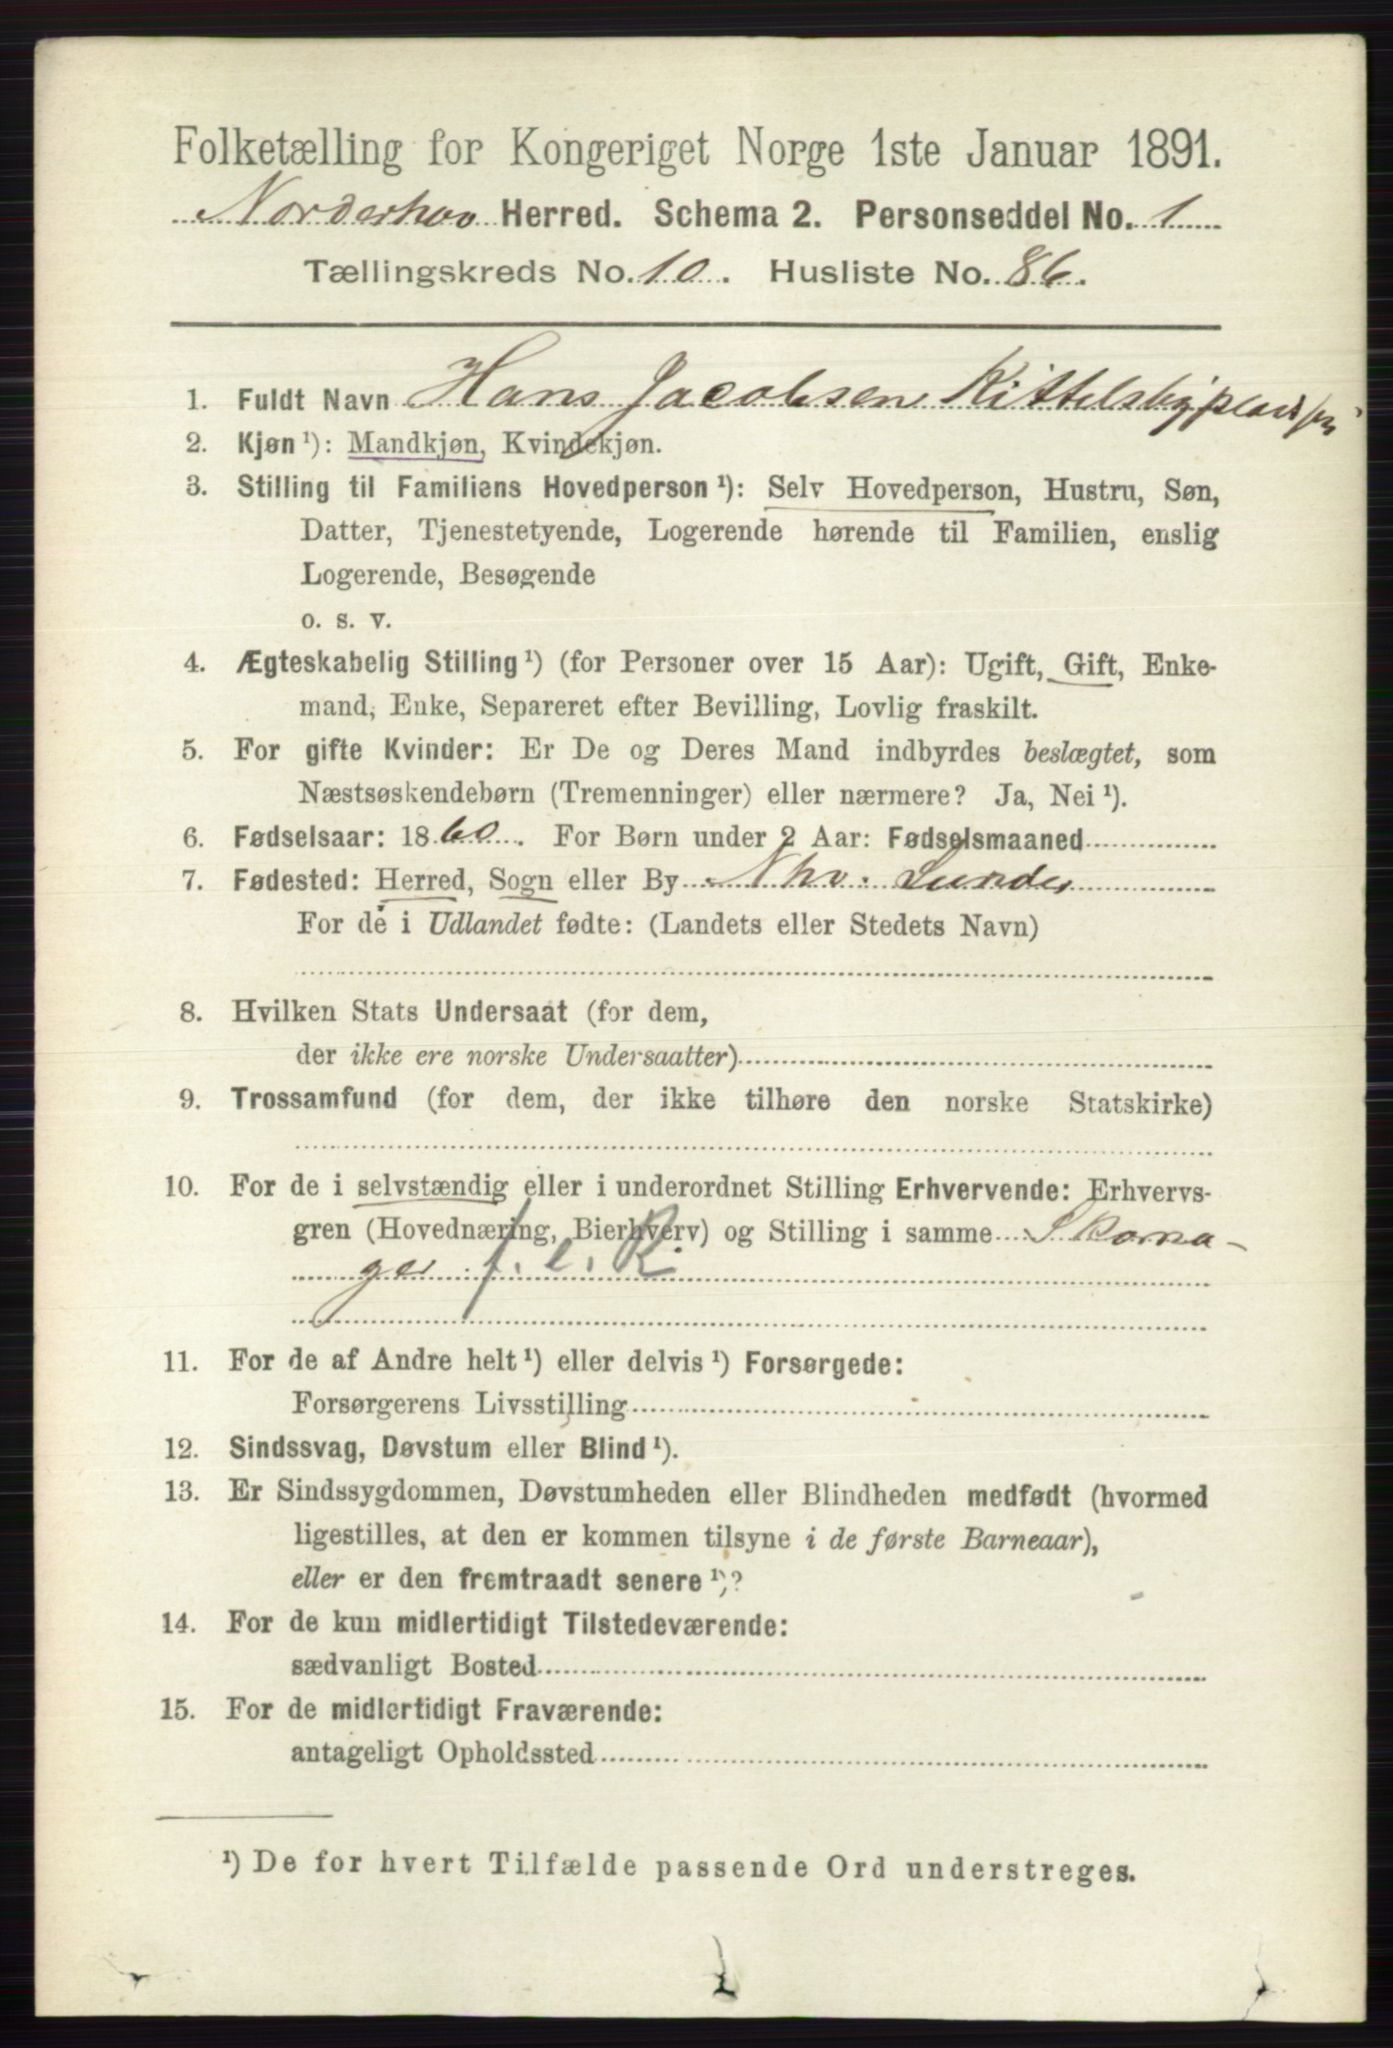 Folketælling for Kongeriget Norge 1ste Januar 1891.
Norderhov Herred. Schema 2. Personseddel No. 1
Tællingskreds No. 10. Husliste No. 86.
1. Fuldt Navn Hans Jacobsen Kittelsbypladsen
2. Kjøn¹): Mandkjøn, Kvindekjøn.
3. Stilling til Familiens Hovedperson¹): Selv Hovedperson, Hustru, Søn,
Datter, Tjenestetyende, Logerende hørende til Familien, enslig
Logerende, Besøgende
o. s. v.
4. Ægteskabelig Stilling¹) (for Personer over 15 Aar): Ugift, Gift, Enke-
mand, Enke, Separeret efter Bevilling, Lovlig fraskilt.
5. For gifte Kvinder: Er De og Deres Mand indbyrdes beslægtet, som
Næstsøskendebørn (Tremenninger) eller nærmere? Ja, Nei¹).
6. Fødselsaar: 1860. For Børn under 2 Aar: Fødselsmaaned
7. Fødested: Herred, Sogn eller By Nhv. Lunder
For de i Udlandet fødte: (Landets eller Stedets Navn)
8. Hvilken Stats Undersaat (for dem,
der ikke ere norske Undersaatter)
9. Trossamfund (for dem, der ikke tilhøre den norske Statskirke)
10. For de i selvstændig eller i underordnet Stilling Erhvervende: Erhvervs-
gren (Hovednæring, Bierhverv) og Stilling i samme Skoma-
ger f. e. R.
11. For de af Andre helt¹) eller delvis¹) Forsørgede:
Forsørgerens Livsstilling
12. Sindssvag, Døvstum eller Blind¹).
13. Er Sindssygdommen, Døvstumheden eller Blindheden medfødt (hvormed
ligestilles, at den er kommen tilsyne i de første Barneaar),
eller er den fremtraadt senere¹)?
14. For de kun midlertidigt Tilstedeværende:
sædvanligt Bosted
15. For de midlertidigt Fraværende:
antageligt Opholdssted
¹) De for hvert Tilfælde passende Ord understreges.